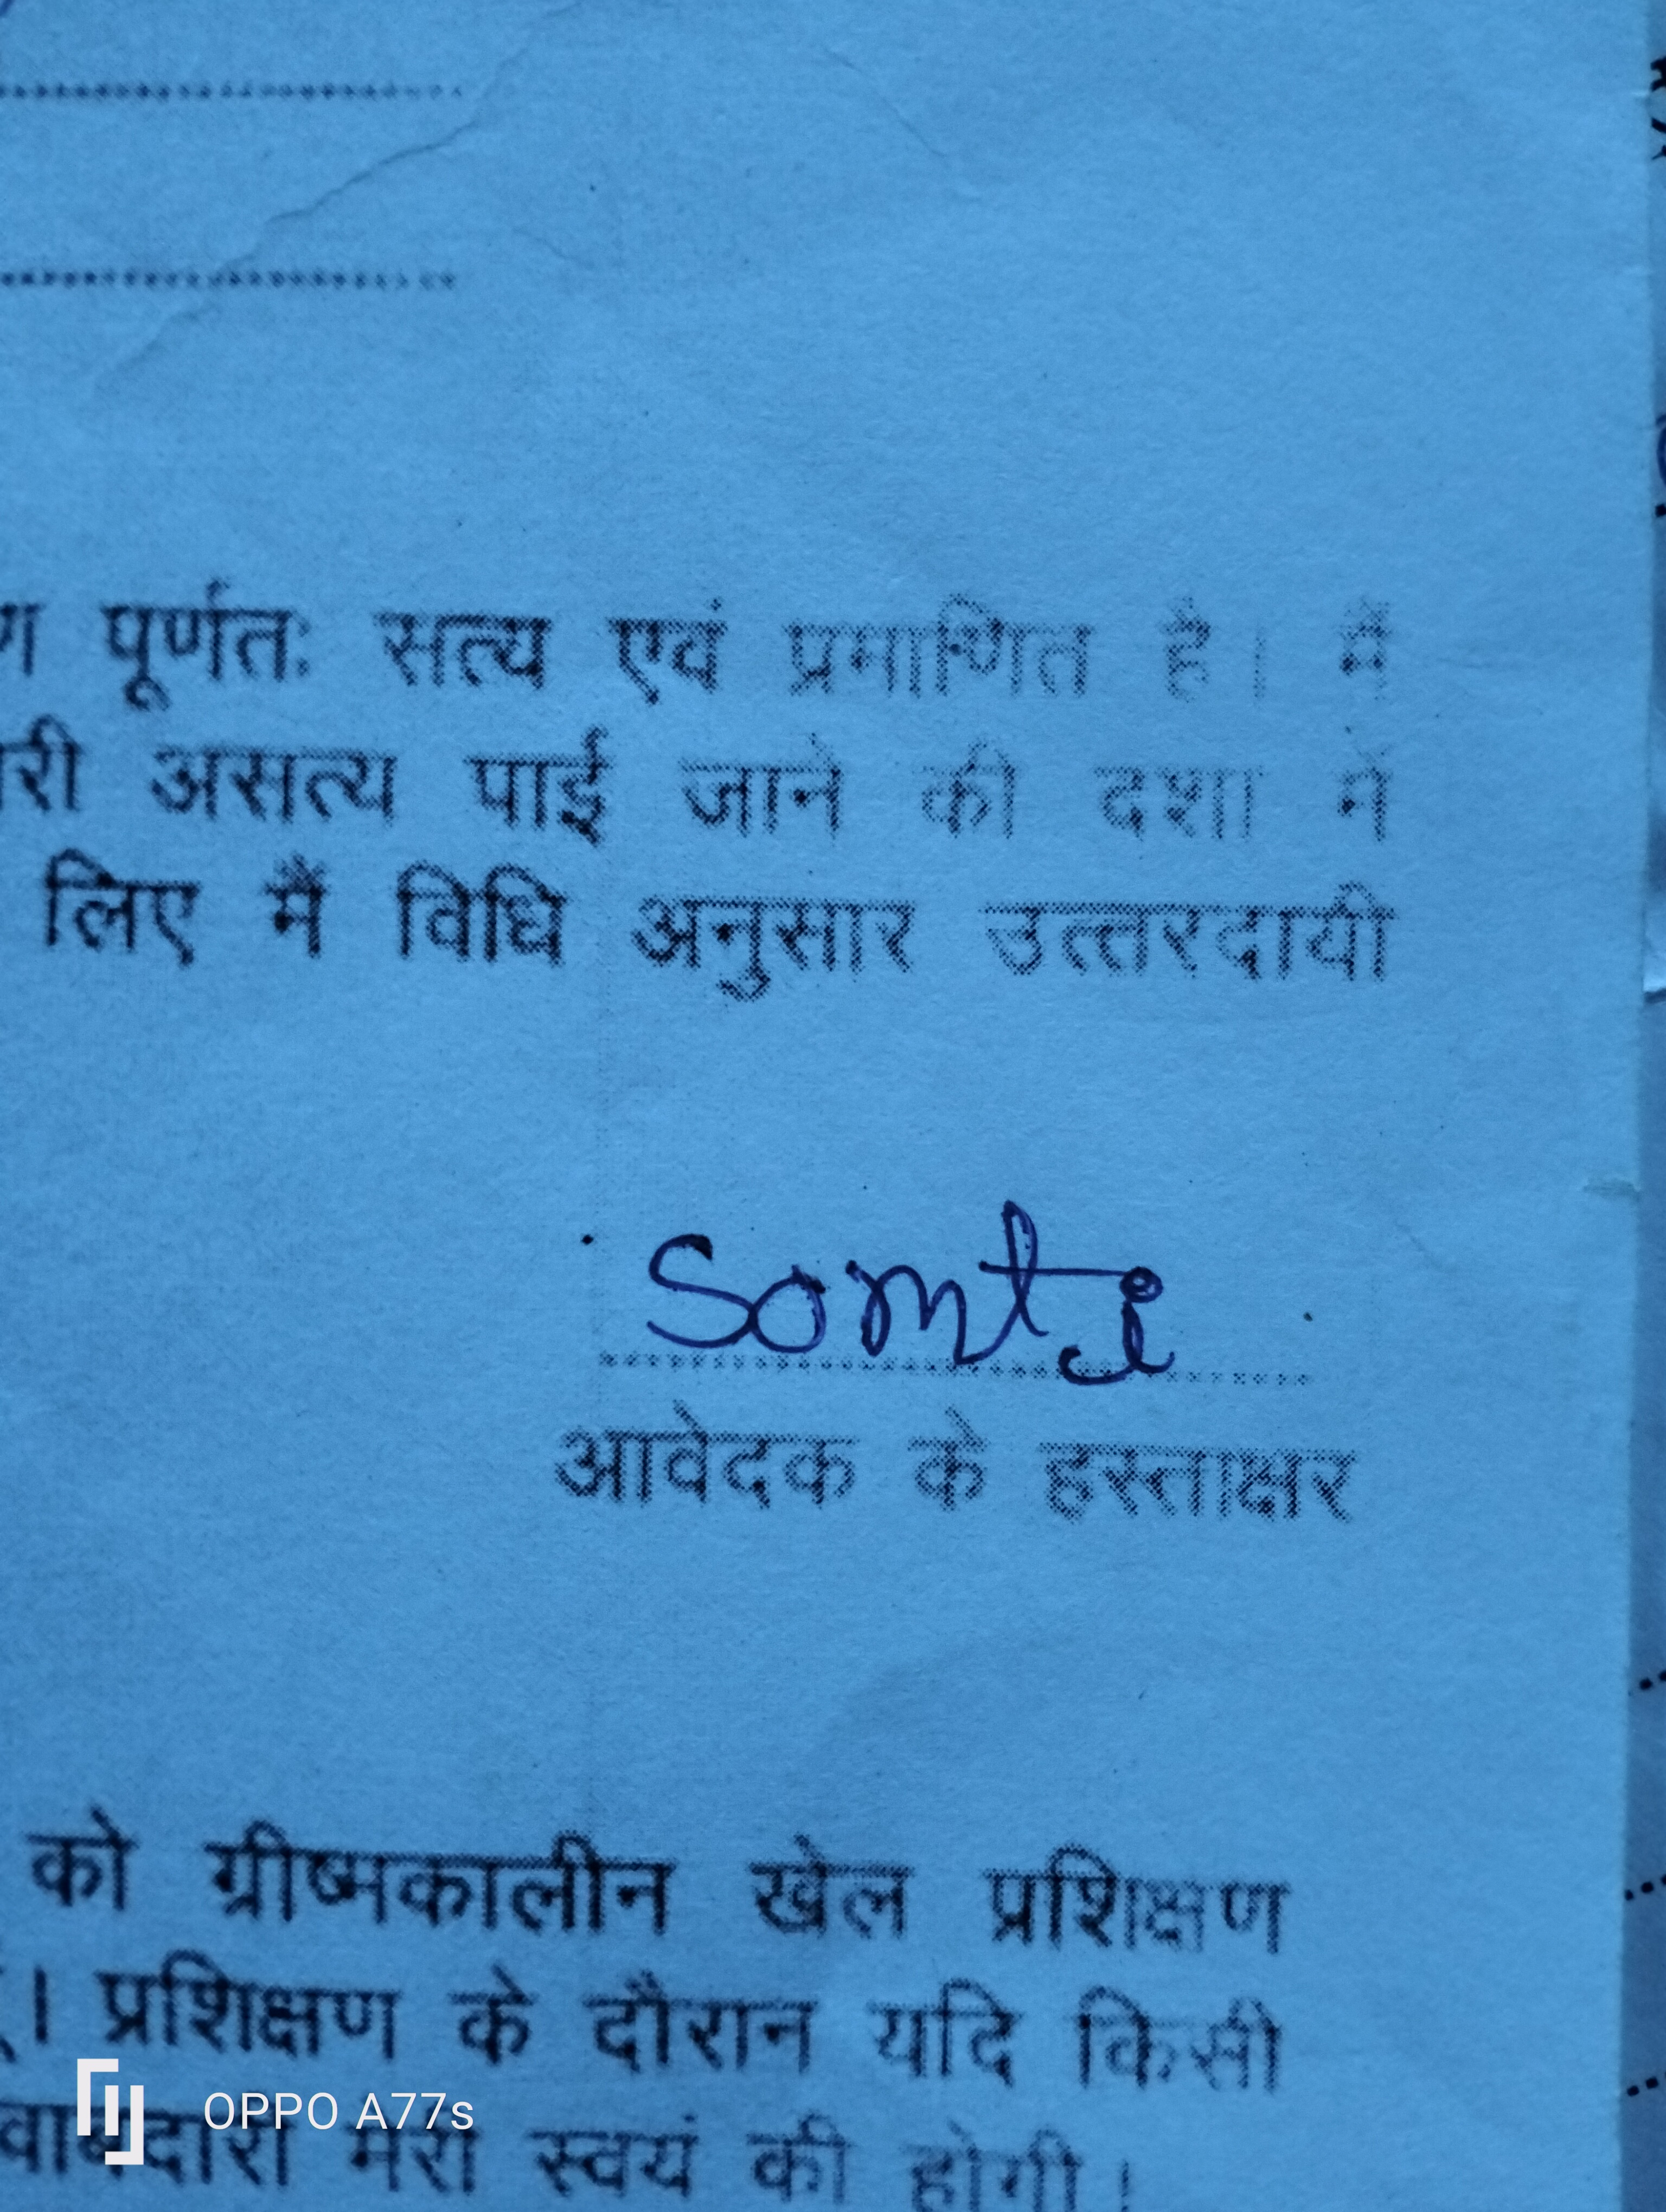 पूर्णतः सत्य एवं प्रमाणित है। मैं
असत्य पाई जाने की दशा में
लिए मैं विधि अनुसार उत्तरदायी
Somti
आवेदक के हस्ताक्षर
को ग्रीष्मकालीन खेल प्रशिक्षण
। प्रशिक्षण के दौरान यदि किसी
मेरी स्वयं की होगी।
OPPO A77s